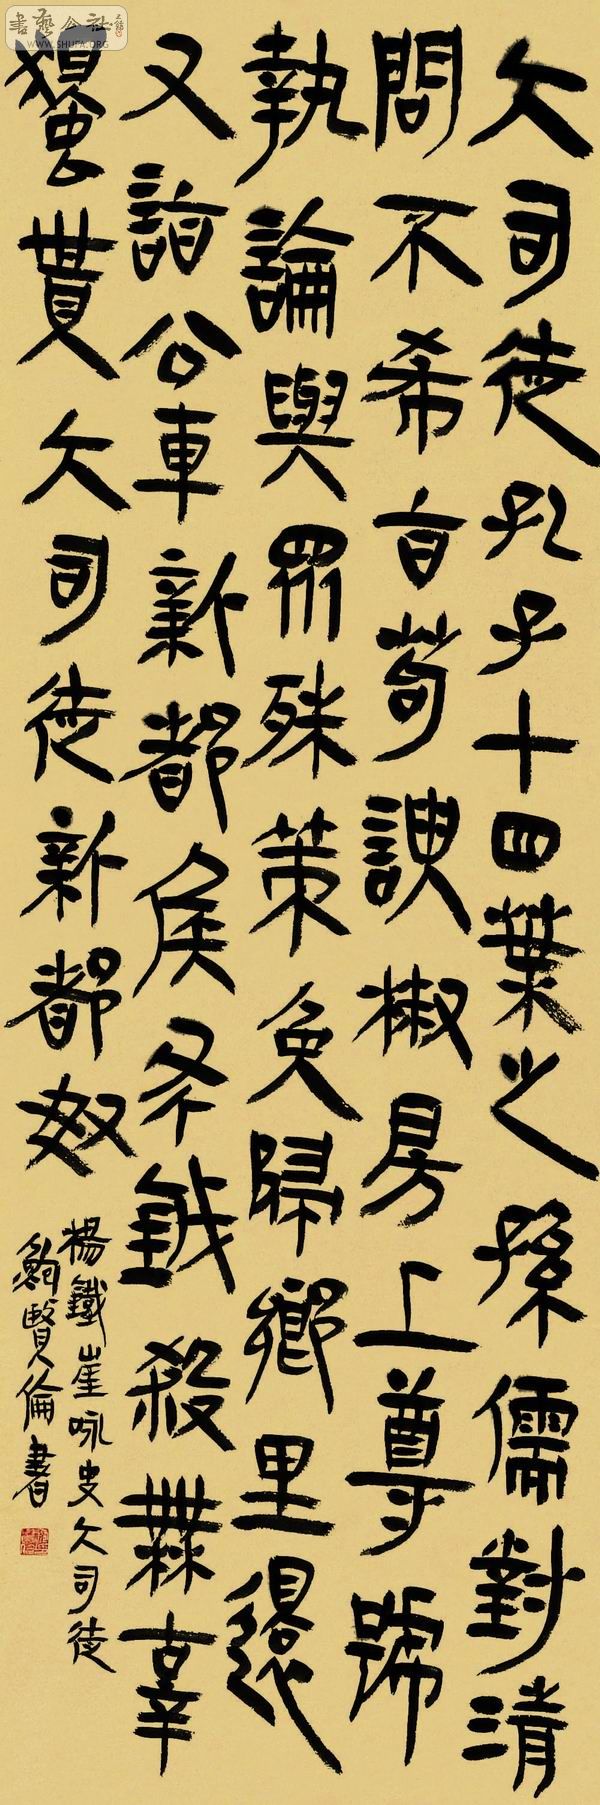 書藝公社
WWW.SHUFA.ORG
大司徒孔子十四葉之孫儒對清
問不希旨苟諛椒房上尊號
執論與眾殊策免歸鄉里
又詣公車新都侯斧鉞殺無辜
獨貰大司徒新都奴
楊鐵崖咏史大司徒
鮑賢倫書